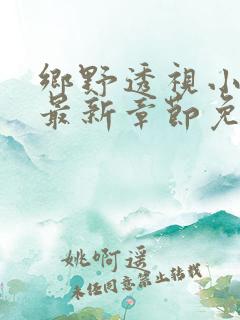 鄉野透視小
最新章節免
姚啊遥
未任同意禁止转载